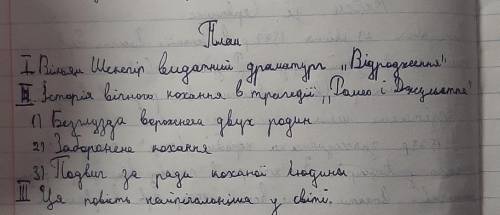 План
I. Вільям Шекспір видатний драматург „Відродження"
II. Історія вічного кохання в трагедії „Ромео і Джульєтта"
1) Безглузда ворожнеча двух родин
2) Заборонене кохання
3) Подвиг за ради коханої людини
III Ця повість найпечальніша у світі.